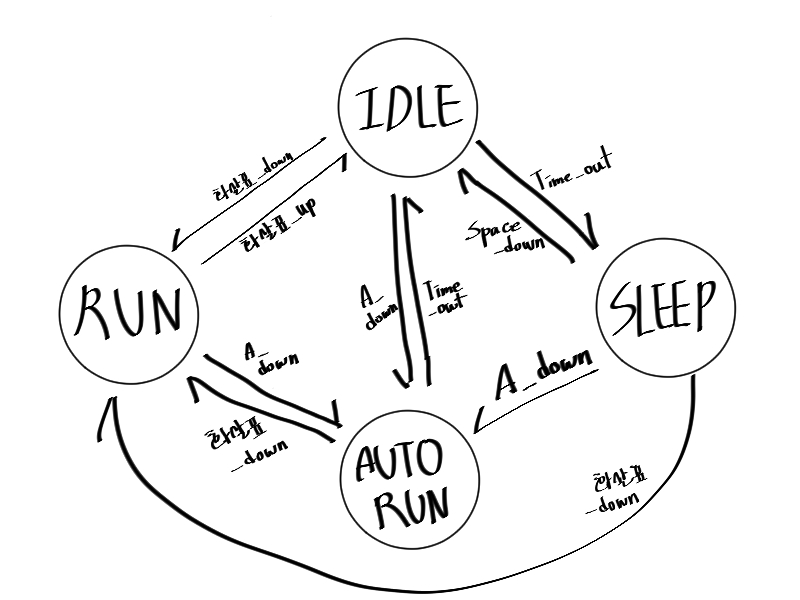 IDLE
화살표_down
화살표_up
Time_out
Space
_down
RUN
A_
down
Time
_out
SLEEP
A_
down
화살표
_down
A_down
AUTO
RUN
화살표
_down